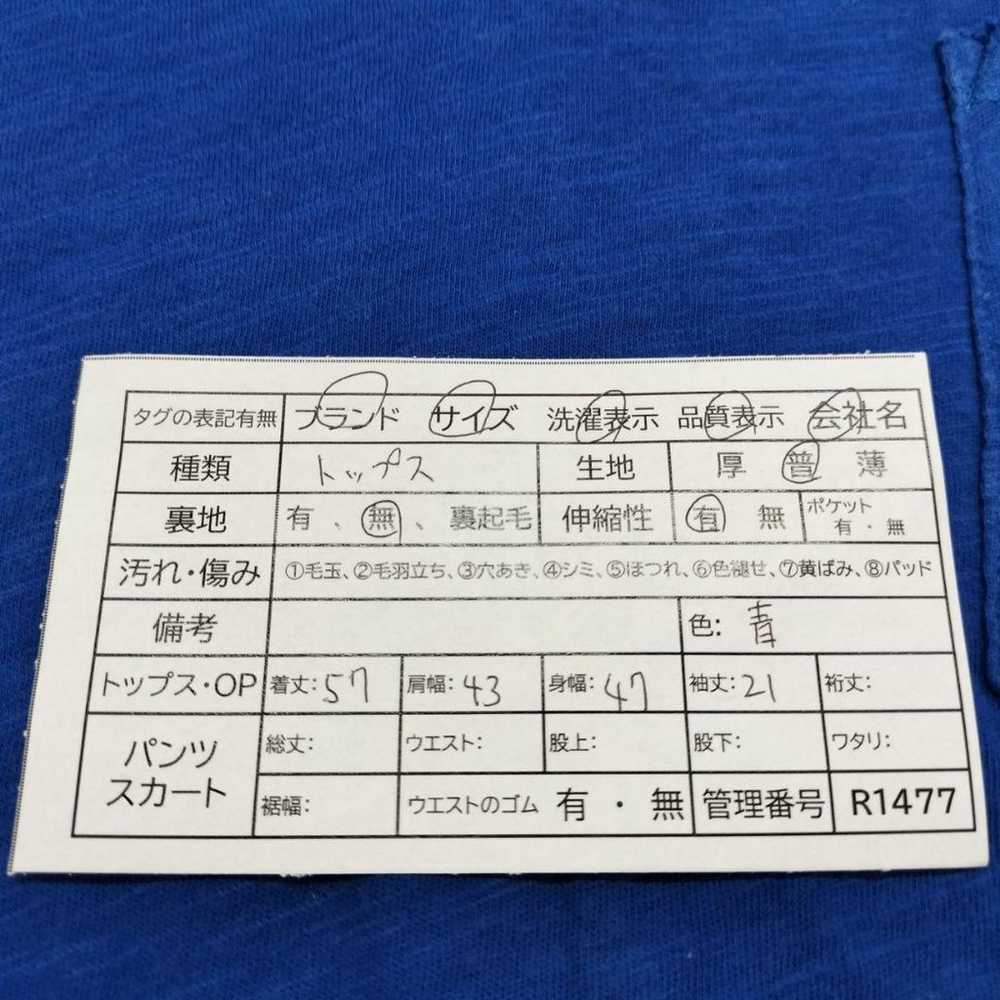 タグの表記有無 ブランド サイズ 洗濯表示 品質表示 会社名
種類 トップス 生地 厚 普 薄
裏地 有 、 無 、 裏起毛 伸縮性 有 無 ポケット 有 ・ 無
汚れ・傷み ①毛玉、②毛羽立ち、③穴あき、④シミ、⑤ほつれ、⑥色褪せ、⑦黄ばみ、⑧パッド
備考 色: 青
トップス・OP 着丈: 57 肩幅: 43 身幅: 47 袖丈: 21 裄丈:
パンツ スカート 総丈: ウエスト: 股上: 股下: ワタリ:
裾幅: ウエストのゴム 有 ・ 無 管理番号 R1477